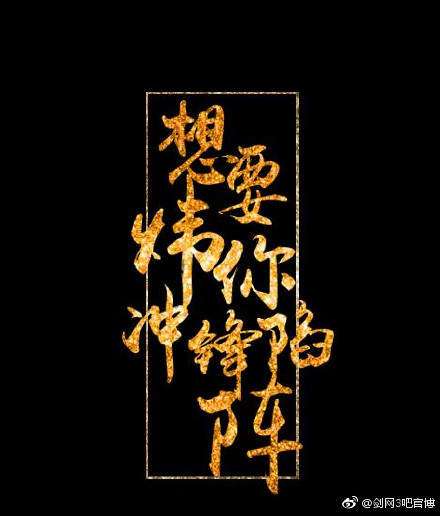 想要
炜你
冲锋陷
阵
@剑网3吧官博